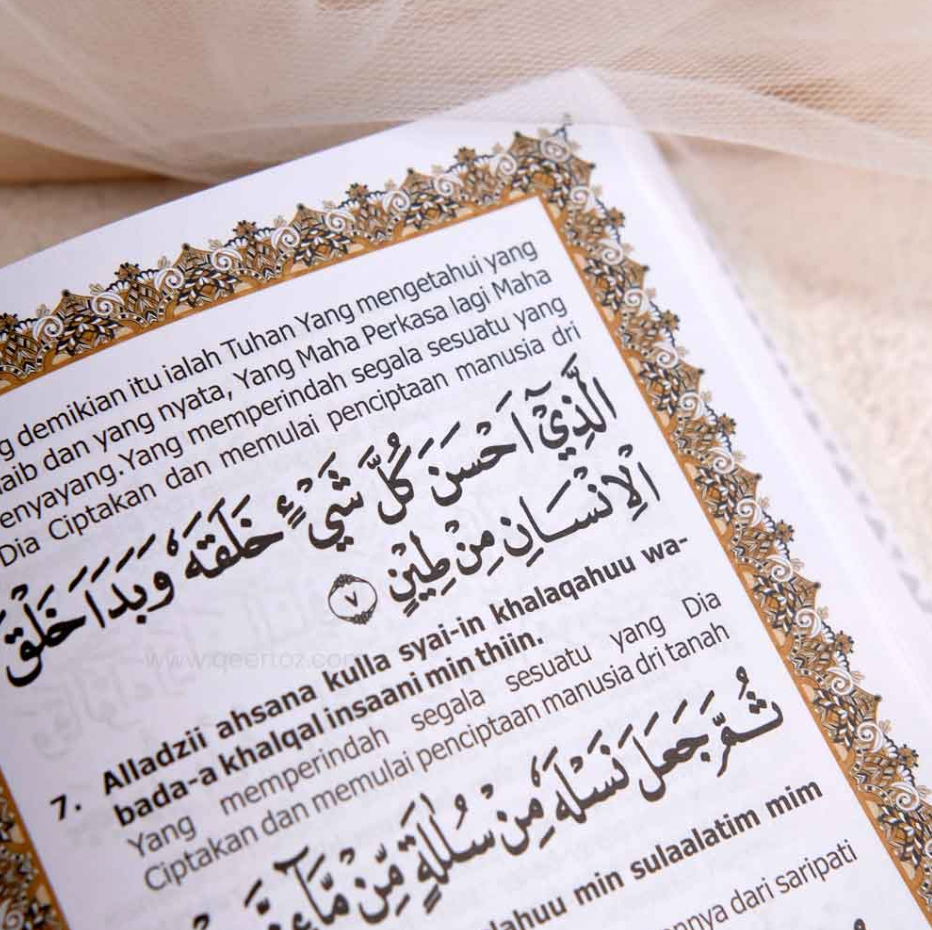 demikian itu ialah Tuhan Yang mengetahui yang
dan yang nyata, Yang Maha Perkasa lagi Maha
enyayang.Yang memperindah segala sesuatu yang
Dia Ciptakan dan memulai penciptaan manusia dri
الَّذِيْٓ اَحْسَنَ كُلَّ شَيْءٍ خَلَقَهٗ وَبَدَاَ خَلْقَ
الْاِنْسَانِ مِنْ طِيْنٍ ٧
7. Alladzii ahsana kulla syai-in khalaqahuu wa-
bada-a khalqal insaani min thiin.
Yang memperindah segala sesuatu yang Dia
Ciptakan dan memulai penciptaan manusia dri tanah
www.qeertoz.com
ثُمَّ جَعَلَ نَسْلَهٗ مِنْ سُلٰلَةٍ مِّنْ مَّاۤءٍ
lahuu min sulaalatim mim
nnya dari saripati